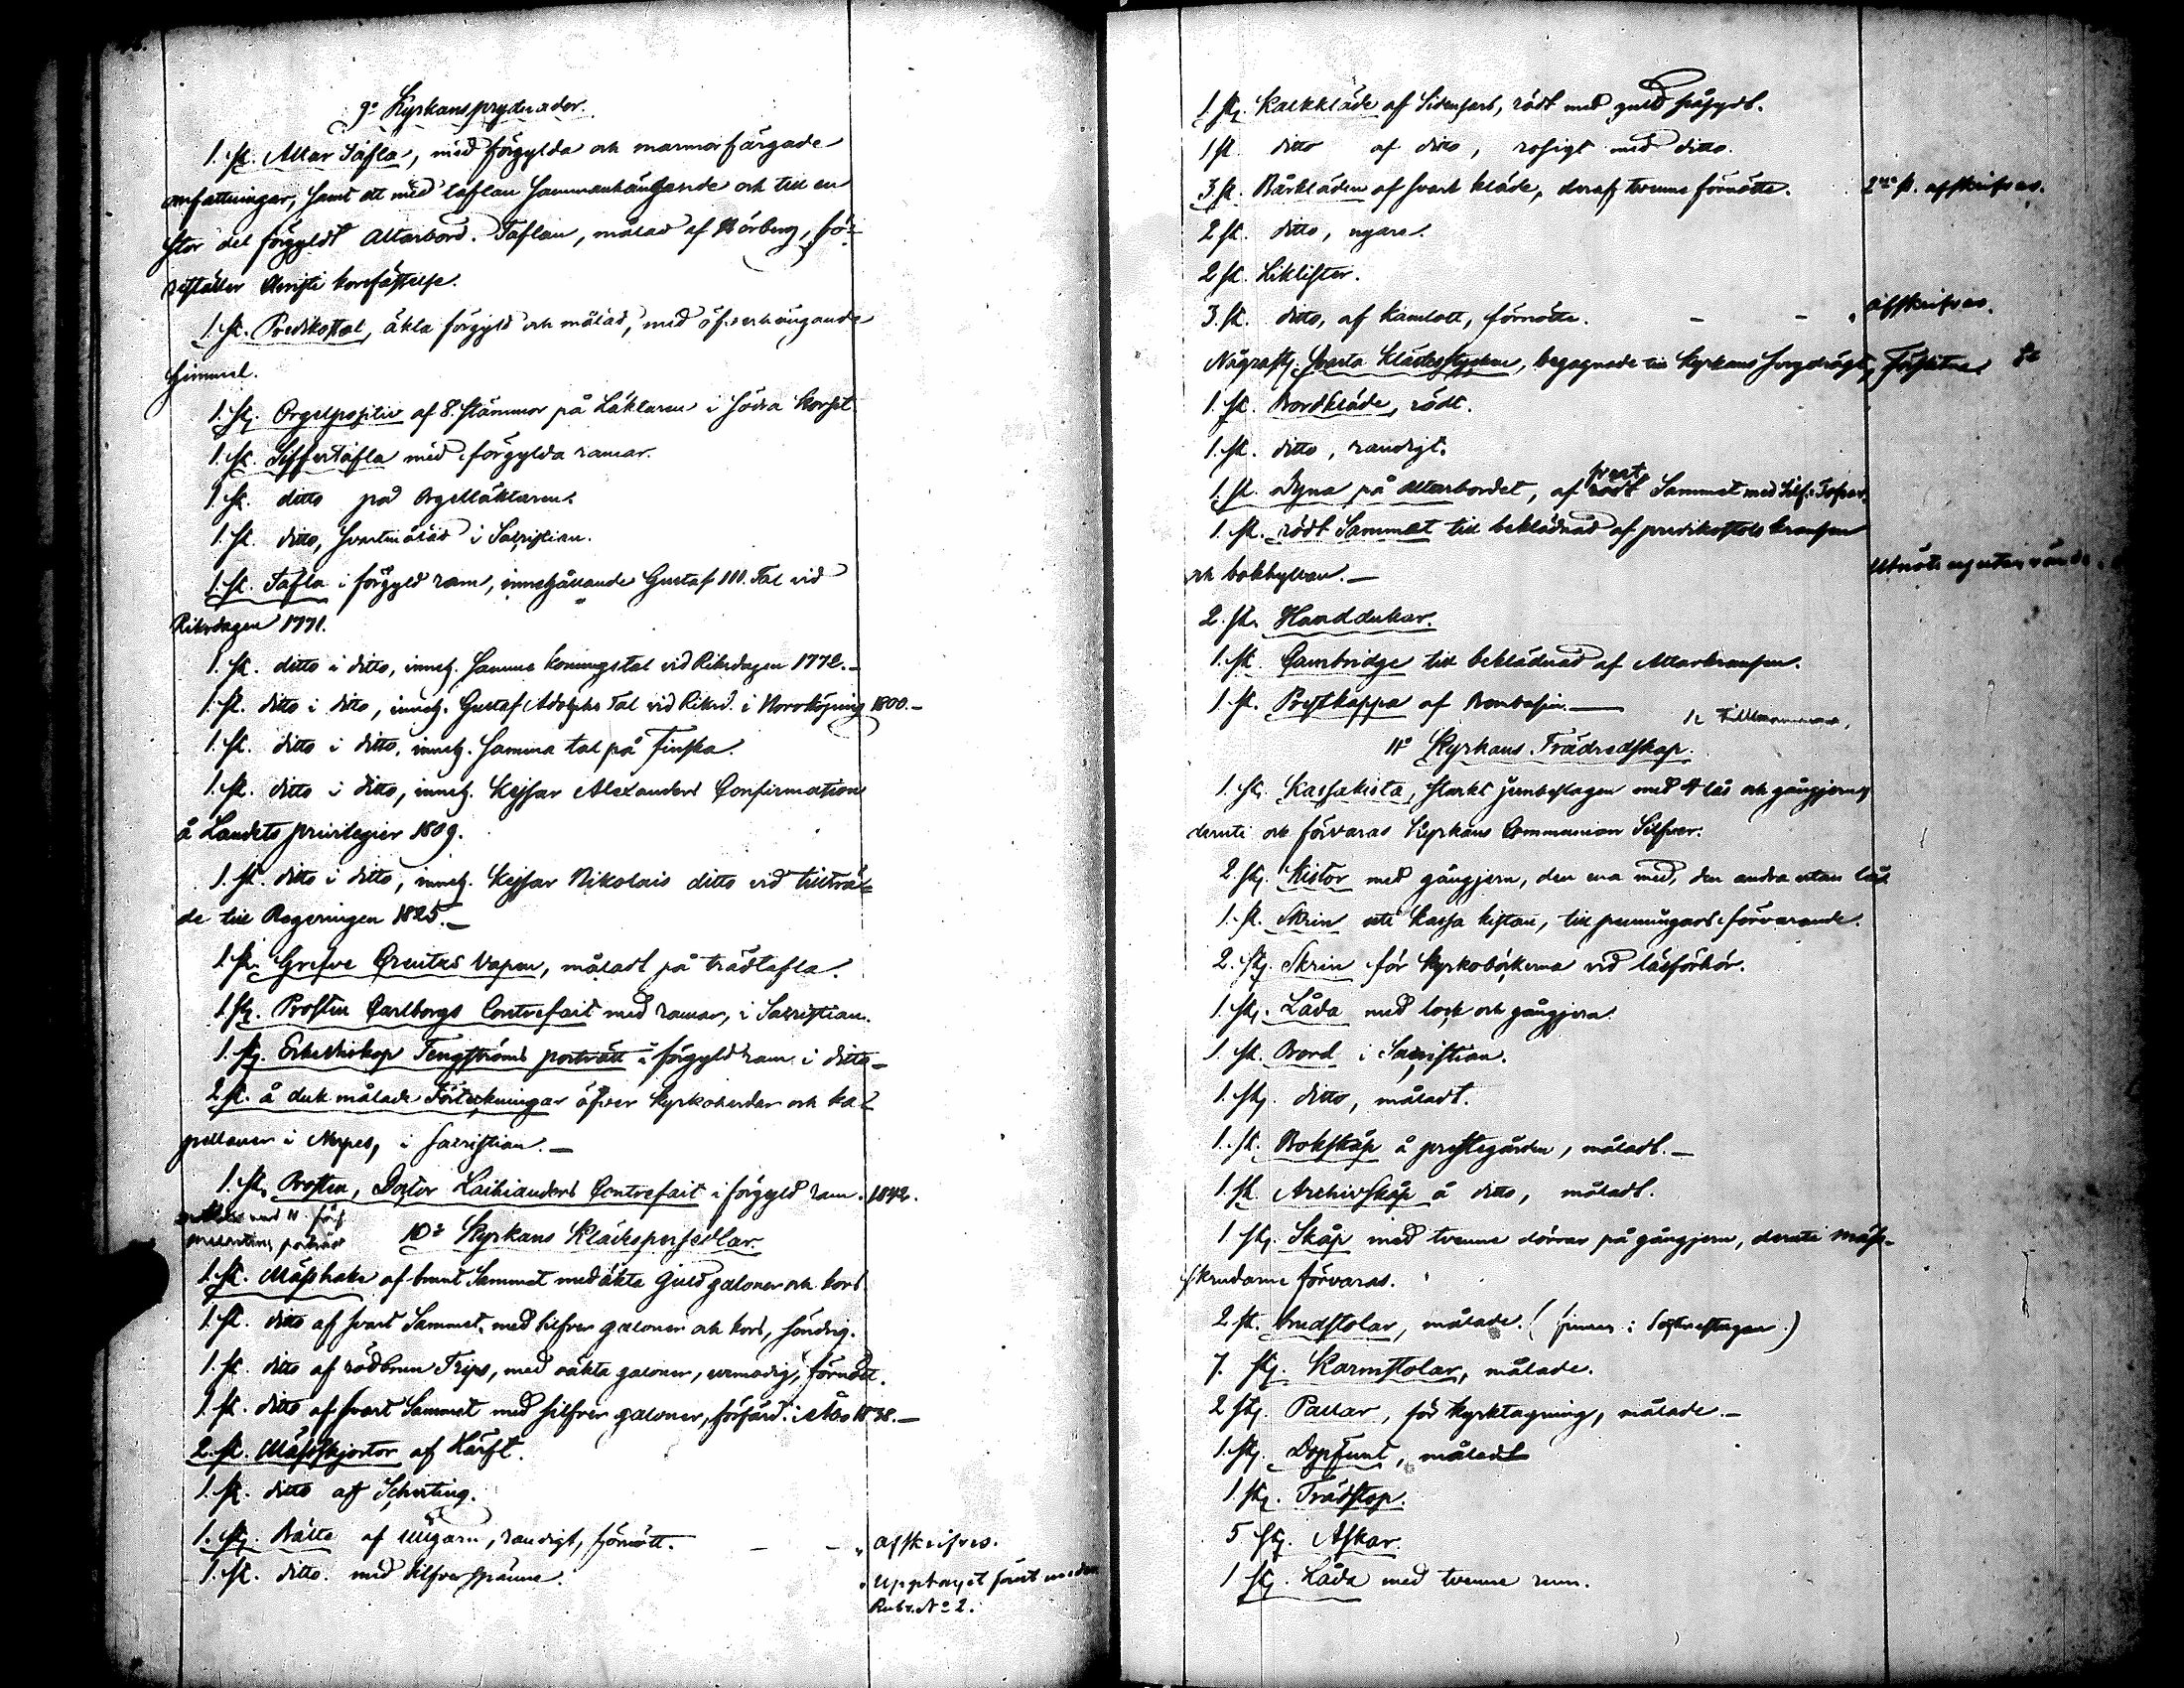 9º Kyrkans prydnader.
1. st. Altar Tafla, med förgylda och marmorfärgade
omfattningar, samt ett med taflan sammanhängande och till en
stor del förgyldt Altarbord. Taflan, målad af Hörberg, fö-
reställer Christi korsfästelse.
1. st. Predikstol, äkta förgyld och målad, med öfverhängande
himmel.
1. st. Orgelpositiv af 8. stämmor på Läktaren i södra korset
1. st. Siffertafla med förgylda ramar.
1 st. ditto på Orgelläktaren.
1. st. ditto, svartmålad i Sacristian.
1. st. Tafla i förgyld ram, innehållande Gustaf III. Tal vid
Riksdagen 1771.
1. st. ditto i ditto, inneh. samme konungs tal vid Riksdagen 1772.
1. st. ditto i ditto, inneh. Gustaf Adolphs Tal vid Riksd. i Norrköping 1800.
1. st. ditto i ditto, inneh. samma tal på Finska.
1. st. ditto i ditto, inneh. Kejsar Alexanders Confirmation
å Landets privilegier 1809.
1. st. ditto i ditto, inneh. Kejsar Nikolais ditto vid tillträ-
de till Regeringen 1825.
1. st. Grefve Creutzs Vapen, måladt på trädtafla.
1 st. Prosten Carlborgs Contrefait med ramar, i Sacristian.
1 st. Erkebiskop Tengströms porträtt i förgyld ram i ditto
2 st. å duk målade Förteckningar öfver kyrkoherdar och ka-
pellaner i Nerpes, i sacristian.
1. st. Prosten, Doctor Laihianders Contrefait i förgyld ram. 1842.
porträtt
10º Kyrkans Klädespersedlar.
1. st. Mässhake af brunt Sammet med äkta Guld galoner och kors
1. st. ditto af svart Sammet, med silfver galoner och kors, söndrig.
1. st. ditto af rödbrun Trips, med oäkta galoner, urmodig, förnött.
1 st. ditto af svart Sammet med silfver galoner, förfärd. i Åbo 1838.
2. st. Mässkjortor af Lärft.
1. st. ditto af Schirting.
1. st. Bälte af Ullgarn, randigt, förnött. - - " Afskrifves.
1. st. ditto med silfverspänne. " Upptaget förut under
Rubr. Nº 2.
1 st. Kalkkläde af Sidensars, rödt med guld påsydt.
1 st. ditto af ditto, rosigt med ditto.
3. st. Bårkläden af svart kläde, deraf tvenne förnötte. 2ne st. afskrifves.
2 st. ditto, nyare.
2 st. Liklister.
3. st. ditto, af kamlott, förnötte. - - " afskrifves.
Några st. Svarta Klädesstycken, begagnade till Kyrkans sorgdrägt, Försålda
1. st. Bordkläde, rödt.
1. st. ditto, randigt.
1. st. Dyna på altarbordet, af svart rödt Sammet med Silf. Tofsar
1. st. rödt Sammet till beklädnad af predikstols kransen
och bokhyllan. Utnött
2. st. Handdukar.
1. st. Cambridge till beklädnad af Altarkransen.
1. st. Prestkappa af Bombasin.
11º Kyrkans Trädredskap.
1. st. Kassakista, starkt jernbeslagen med 4 lås och gångjern,
deruti och förvaras Kyrkans Communion Silfver.
2. st. Kistor med gångjern, den ena med, den andra utan lås
1. st. Skrin uti kassa kistan, till penningars förvarande.
2. st. Skrin för kyrkoböckerna vid läsförhör.
1. st. Låda med lock och gångjern.
1. st. Bord i Sacristian.
1. st. ditto, måladt.
1. st. Bokskåp å prestegården, måladt.
1. st. Archivskåp å ditto, måladt.
1 st. Skåp med tvenne dörrar på gångjern, deruti mäss-
skrudarne förvaras.
2. st. brudstolar, målade. (finnes i Sockenstugan.)
7. st. Karmstolar, målade.
2 st. Pallar, för kyrktagning, målade.
1. st. Dopfunt, måladt
1. st. Trädstop.
5 st. Askar.
1 st. Låda med tvenne rum.